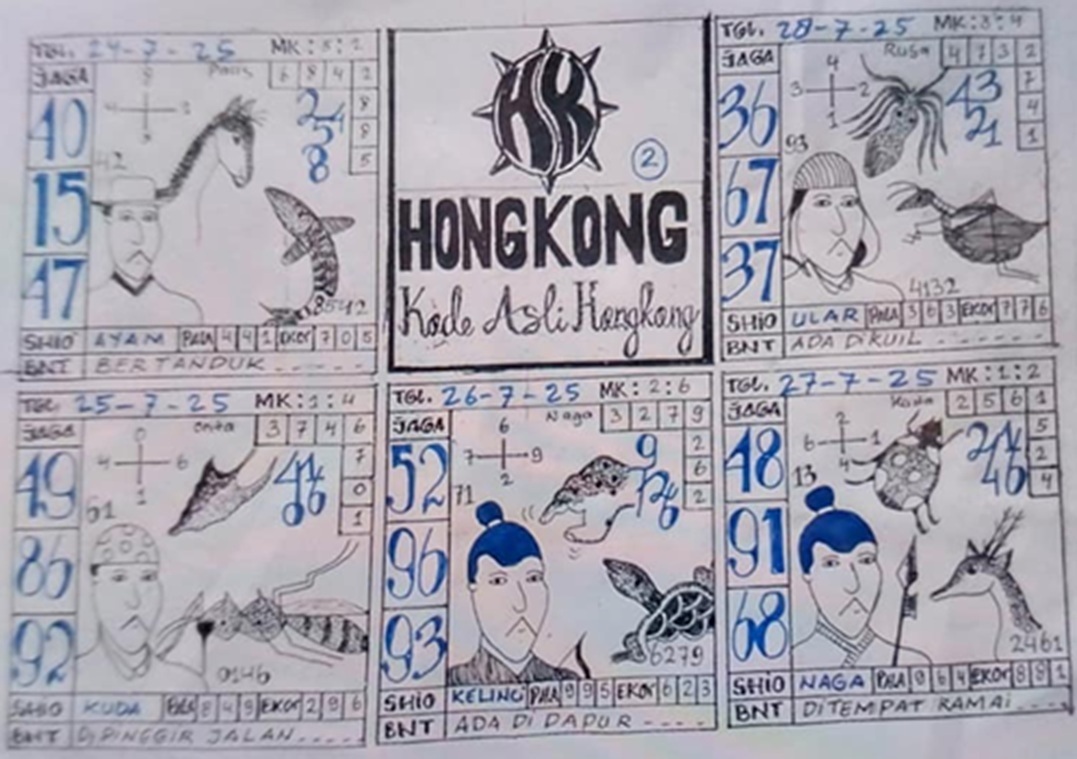 TGL. 24-7-25 MK:5:2
JAGA
6 8 4 2
8
8
5
40
15
47
42
2
54
8
8542
SHIO AYAM PALA 4 4 1 EKOR 7 0 5
BNT BERTANDUK -----
HK
2
HONGKONG
Kode Asli Hongkong
TGL. 28-7-25 MK:3:4
JAGA
Rusa
4 7 3 2
7
4
1
4
3 2
1
36
67
37
93
43
21
4132
SHIO ULAR PALA 3 6 3 EKOR 7 7 6
BNT ADA DIKUIL -----
TGL. 25-7-25 MK:1:4
JAGA
Onta
3 7 4 6
7
0
1
0
4 6
1
49
86
92
61
0146
SHIO KUDA 8 4 9 EKOR 2 9 6
BNT DIPINGGIR JALAN ----
TGL. 26-7-25 MK:2:6
JAGA
Naga
3 2 7 9
2
6
2
6
7 9
2
52
96
93
71
9
6279
SHIO KELINCI PALA 9 9 5 EKOR 6 2 3
BNT ADA DI DAPUR ----
TGL. 27-7-25 MK:1:2
JAGA
Kuda
2 5 6 1
5
2
4
2
6 1
4
48
91
68
13
24
46
2461
SHIO NAGA PALA 9 6 4 EKOR 8 8 1
BNT DITEMPAT RAMAI ----